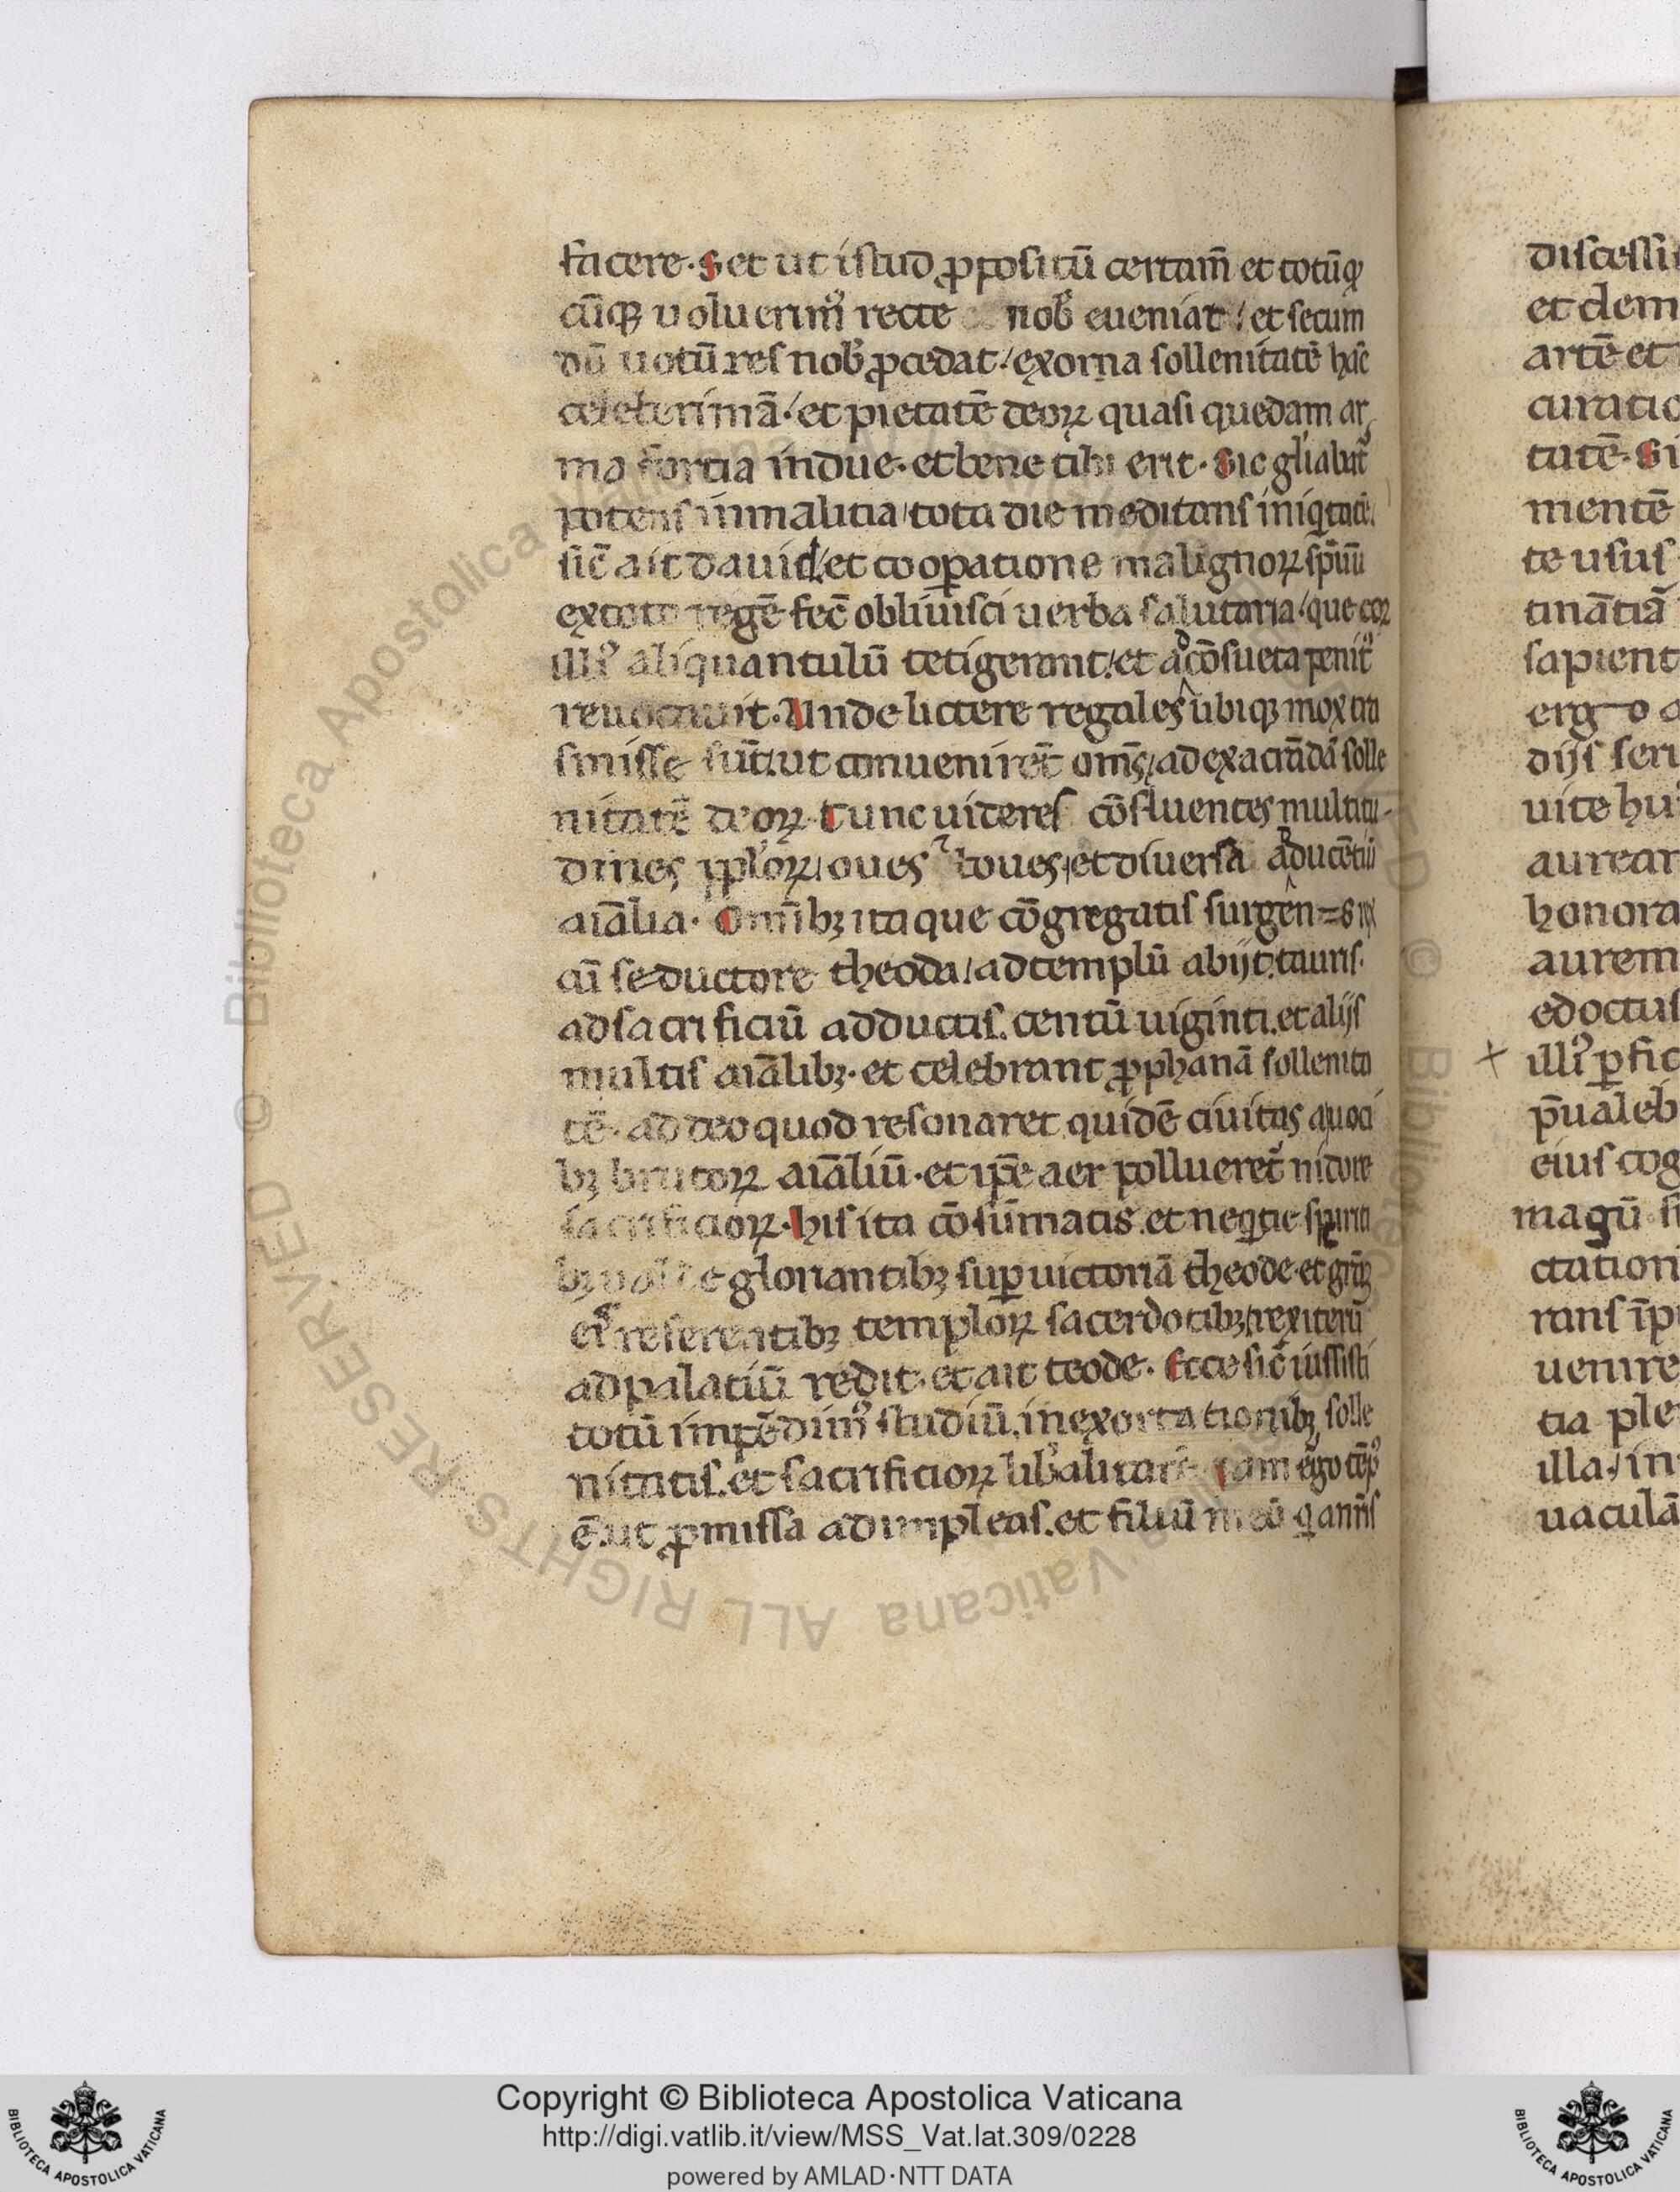 facere. Set ut istud ꝓpositū certam̄ et totūq
cūqꝫ uoluerim᾽ recte nob̄ eueniat / et secun
dū uotū res nob̄ ꝓcedat / exorna sollenitatē hāc
celeberimā / et pietatē deoꝝ quasi quedam ar
ma fortia indue. et bene tibi erit. Sic gl̄iabat᷑
potens in malitia / tota die meditans iniq̇tatē.
sic̄ ait dauid / et coopatione malignoꝝ sp̄uū
ex toto regē fec̄ obliuisci uerba salutaria / que coꝝ
illi᾽ aliquantulū tetigerant / et ad cōsueta penit᾽
reuocauit. Unde lictere regales ubiqꝫ mox tra
smisse sūt / ut conuenirēt om̄s / ad exacrādā solle
nitatē deoꝝ. Tunc uideres cōfluentes multitu-
dines pploꝝ / oues ⁊ boues / et diuersa aducētiū
aīalia. Om̄ibꝫ itaque cōgregatis surgen=s rex
cū seductore theoda / ad templū abijt. tauris.
ad sacrificiū adductis. centū uiginti. et alijs
multis aīalibꝫ. et celebrant ꝓphanā sollenita
tē. adeo quod resonaret quidē ciuitas a uoci
bꝫ brutoꝝ aīaliū. et ip̄e aer pollueret᷑ nidore
sacrificioꝝ. his ita cōsūmatis. et neq̇tie spiriti
bꝫ ualde gloriantibꝫ suꝑ uictoriā theode. et grās
ei referentibꝫ temploꝝ sacerdotibꝫ / rex iterū
ad palatiū redit. et ait teode. Ecce sic̄ iussisti
totū impēdim᾽ studiū. in exortationibꝫ solle
nitatis. et sacrificioꝝ lib̄alitate. iam ergo tēp᾽
ē. ut ꝓmissa adimpleas. et filiū meū q̇ a nr̄is
discessi
et dem
artē et
curatio
tutē. Si
mentē
te usus
tinātiā
sapient
ergo a
dijs seru
uite hui
aurear
honora
aurem
edoctus
+ illi᾽ ꝑfic
p̄ualeb
eius cog
magū si
ctation
rans īp
uenire
tia ple
illa / in
uaculā
© Biblioteca Apostolica Vaticana ALL RIGHTS RESERVED
Copyright © Biblioteca Apostolica Vaticana
http://digi.vatlib.it/view/MSS_Vat.lat.309/0228
powered by AMLAD·NTT DATA
BIBLIOTECA APOSTOLICA VATICANA
BIBLIOTECA APOSTOLICA VATICANA